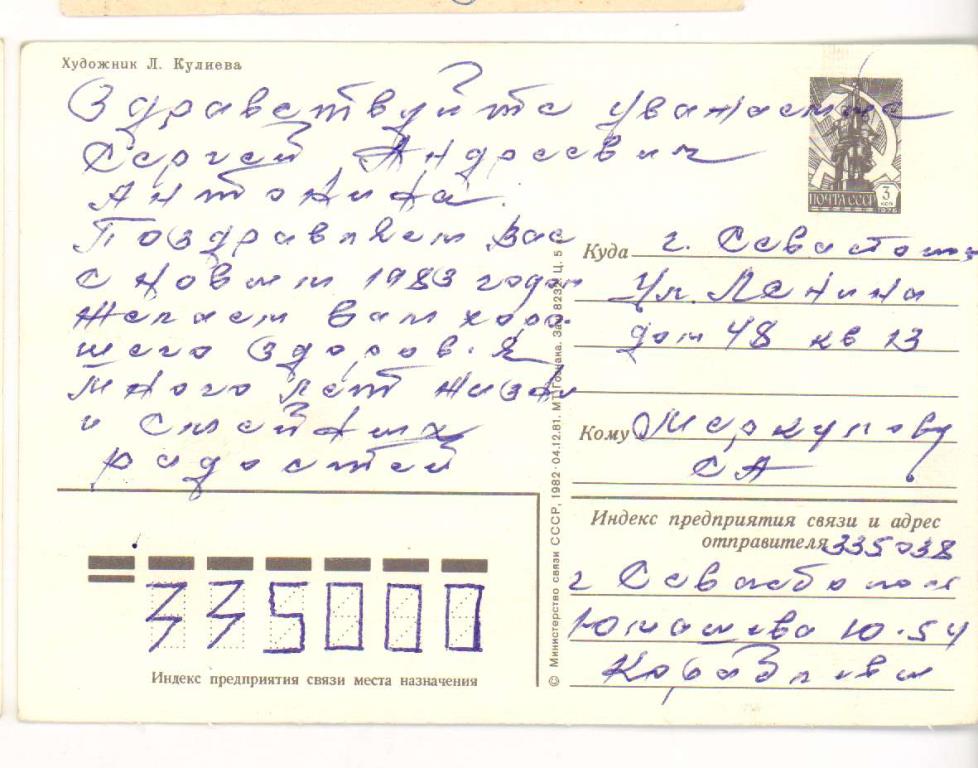 Художник Л. Кулиева
Здравствуйте уважаемые
Сергей Андреевич
Антонина.
Поздравляем Вас
с Новым 1983 годом
Желаем Вам хоро-
шего здоровья
много лет жизни
и
радостей
ПОЧТА СССР 3 КОП 1976
Куда г. Севастополь
Ул. Ленина
дом 48 кв 13
Кому Меркулову
СА
Индекс предприятия связи и адрес
отправителя 335038
г Севастополь
Юмашева 10-54
© Министерство связи СССР, 1982. 04.12.81. МТ Гознака. Зак. 8232. Ц. 5 к.
335000
Индекс предприятия связи места назначения